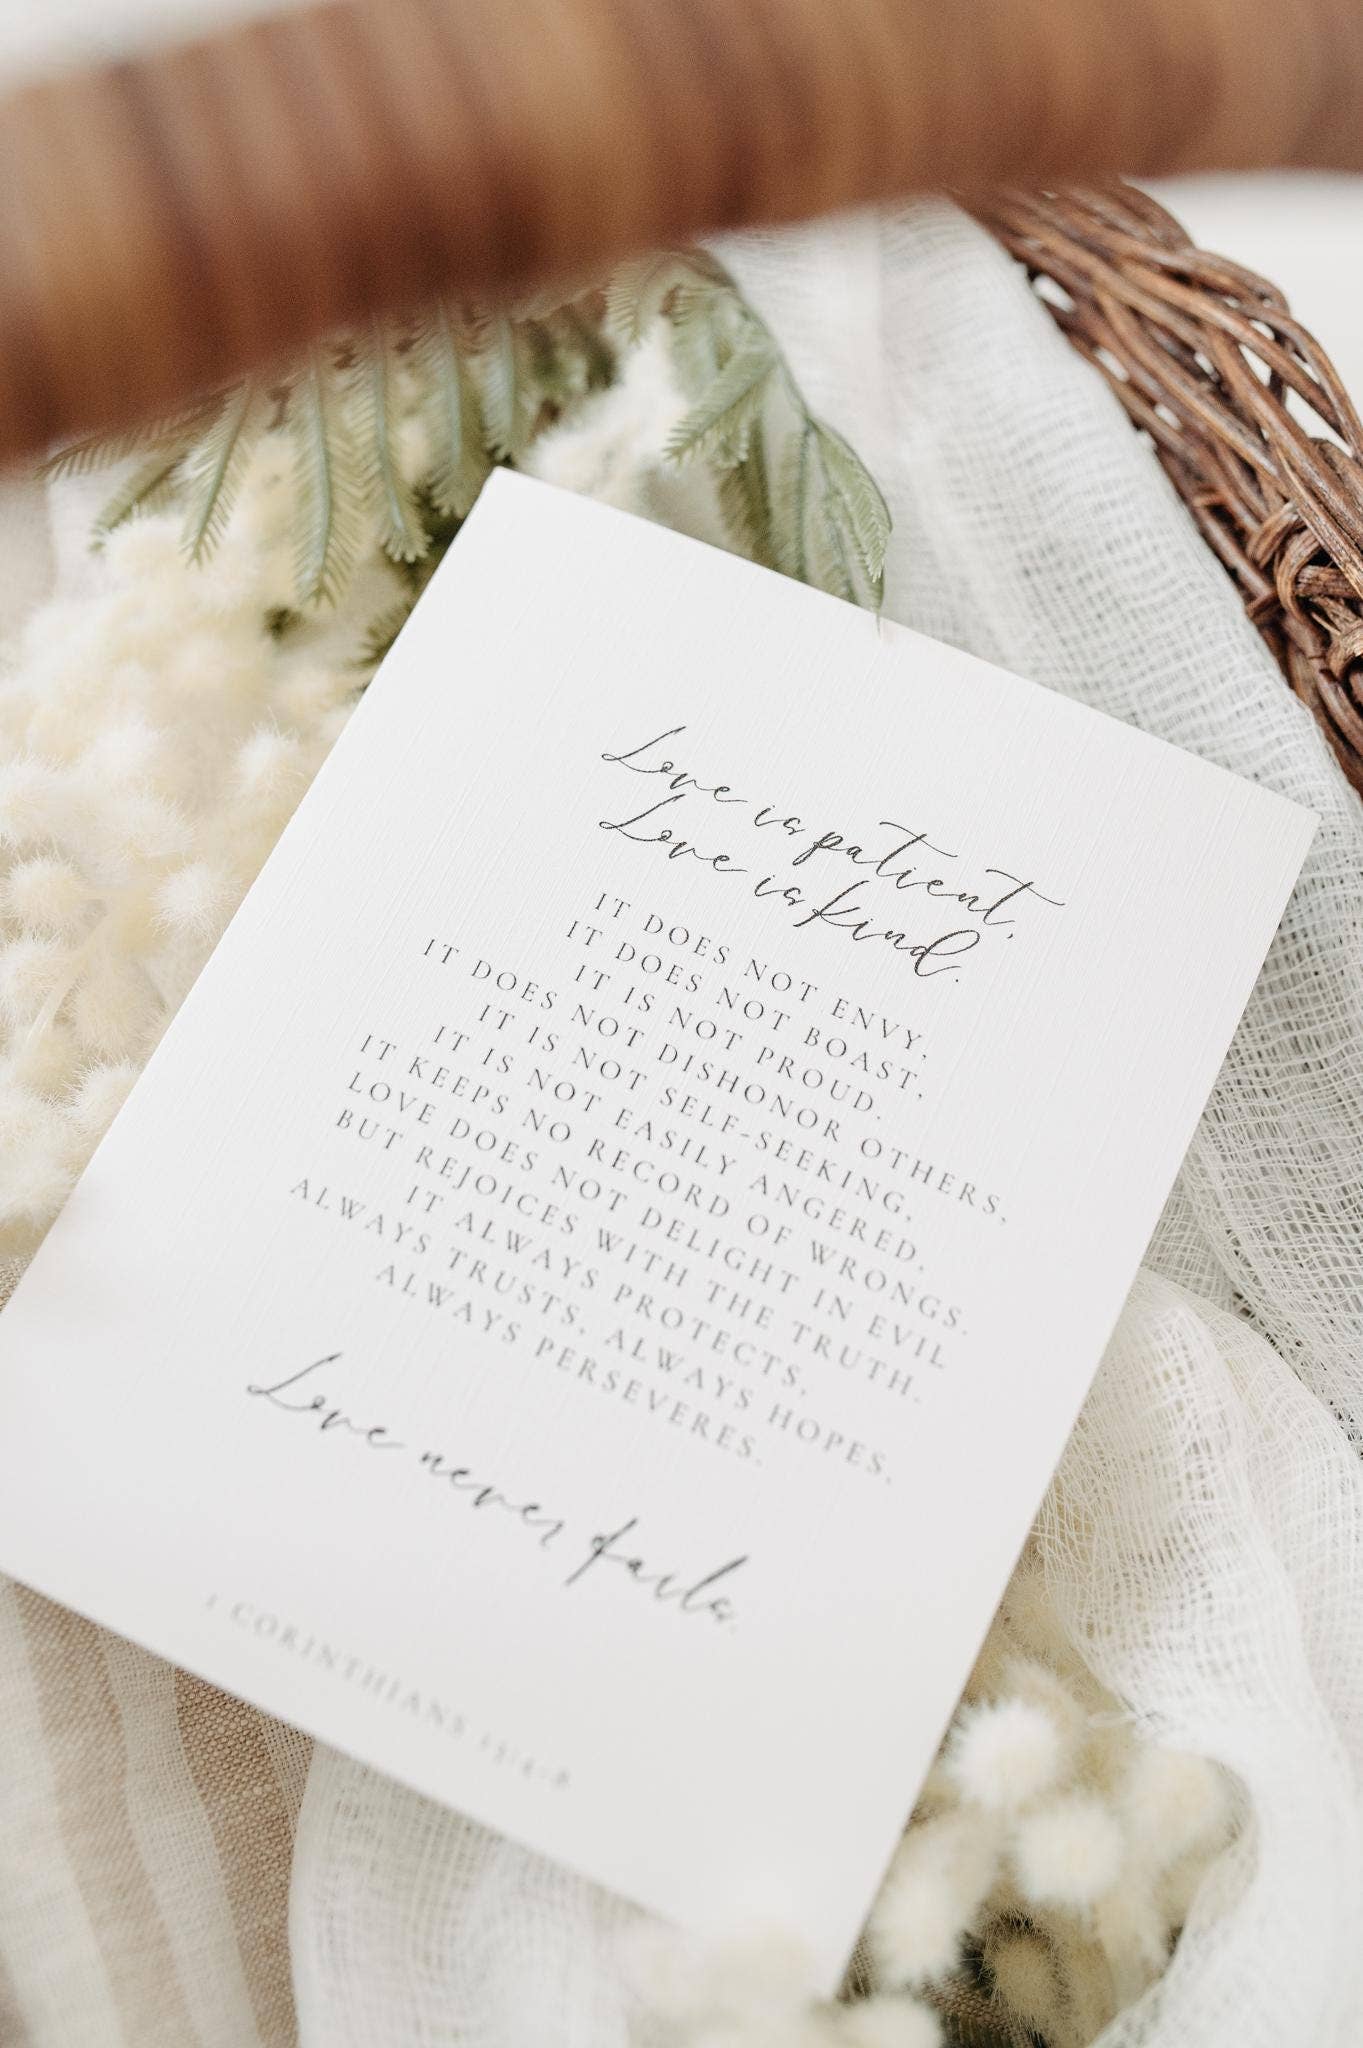 Love is patient,
Love is kind.
IT DOES NOT ENVY,
IT DOES NOT BOAST,
IT IS NOT PROUD.
IT DOES NOT DISHONOR OTHERS,
IT IS NOT SELF-SEEKING,
IT IS NOT EASILY ANGERED.
IT KEEPS NO RECORD OF WRONGS.
LOVE DOES NOT DELIGHT IN EVIL
BUT REJOICES WITH THE TRUTH.
IT ALWAYS PROTECTS,
ALWAYS TRUSTS, ALWAYS HOPES,
ALWAYS PERSEVERES.
Love never fails.
1 CORINTHIANS 13:4-8